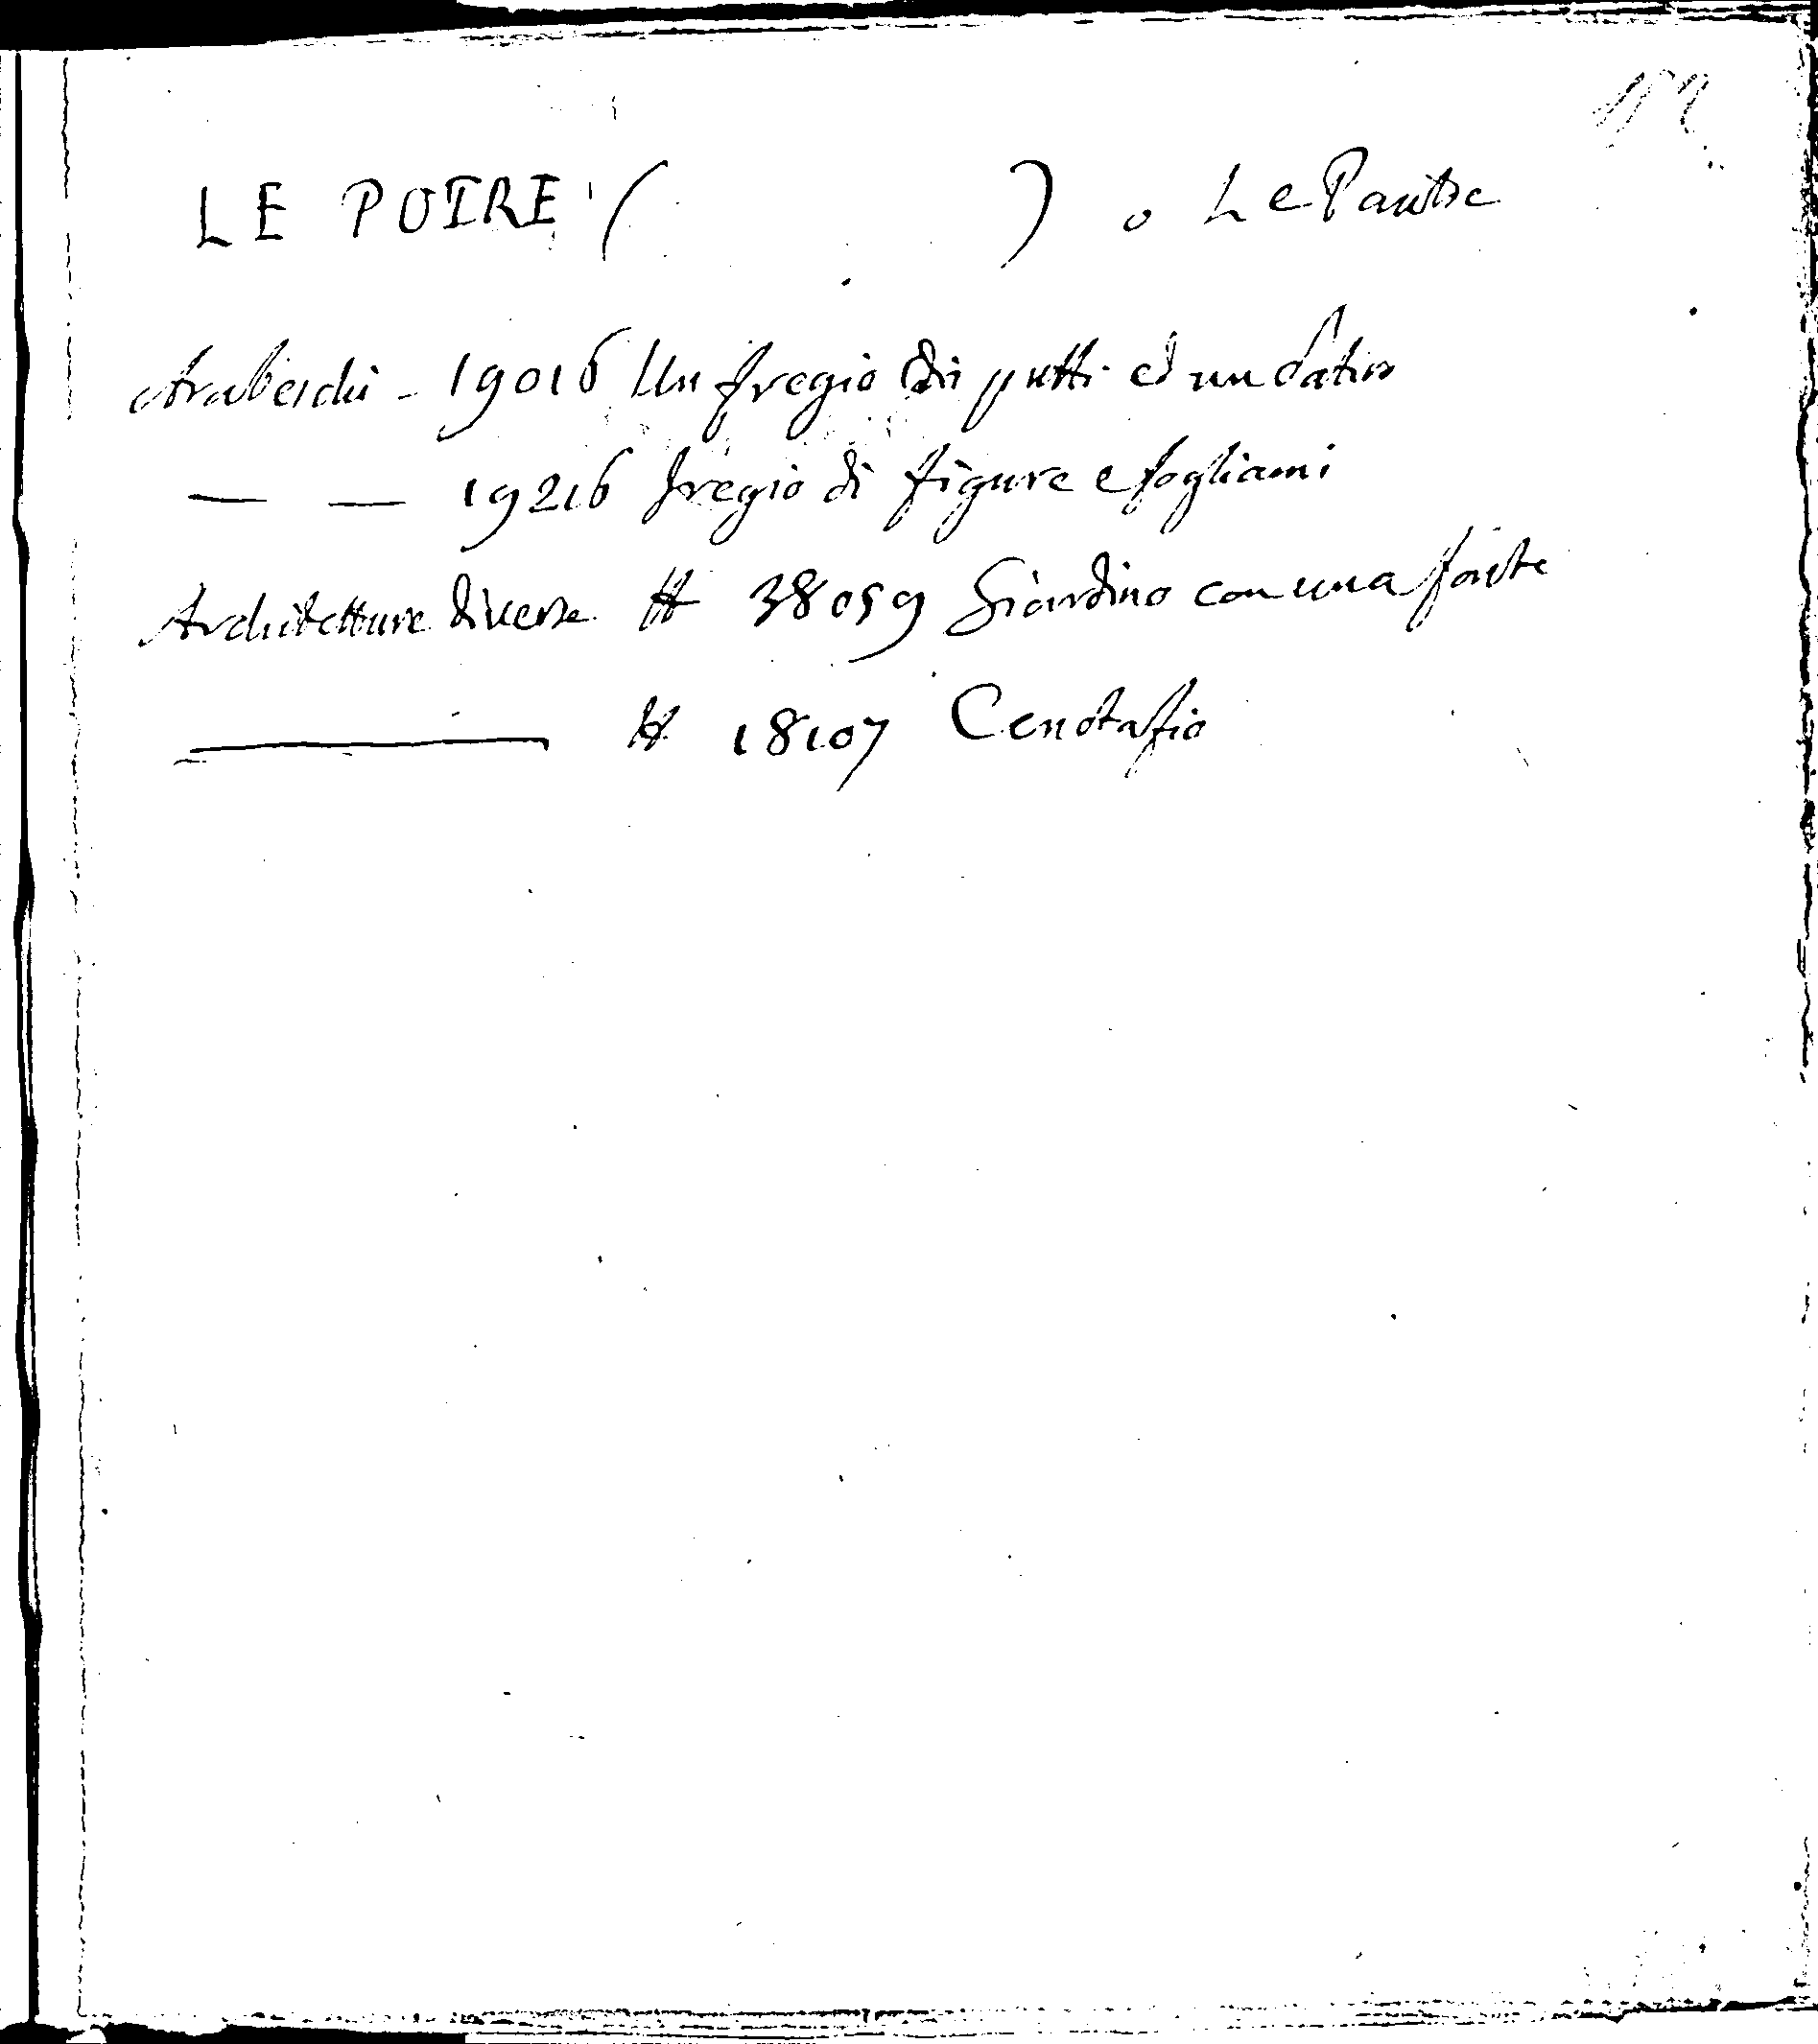 LE POIRE ( ) o Le Pautre
Arabeschi - 19016 Un fregio di putti ed un Satiro
— — 19216 fregio di figure e fogliami
Architetture diverse H 38059 Giardino con una fonte
——— H 18107 Cenotafio